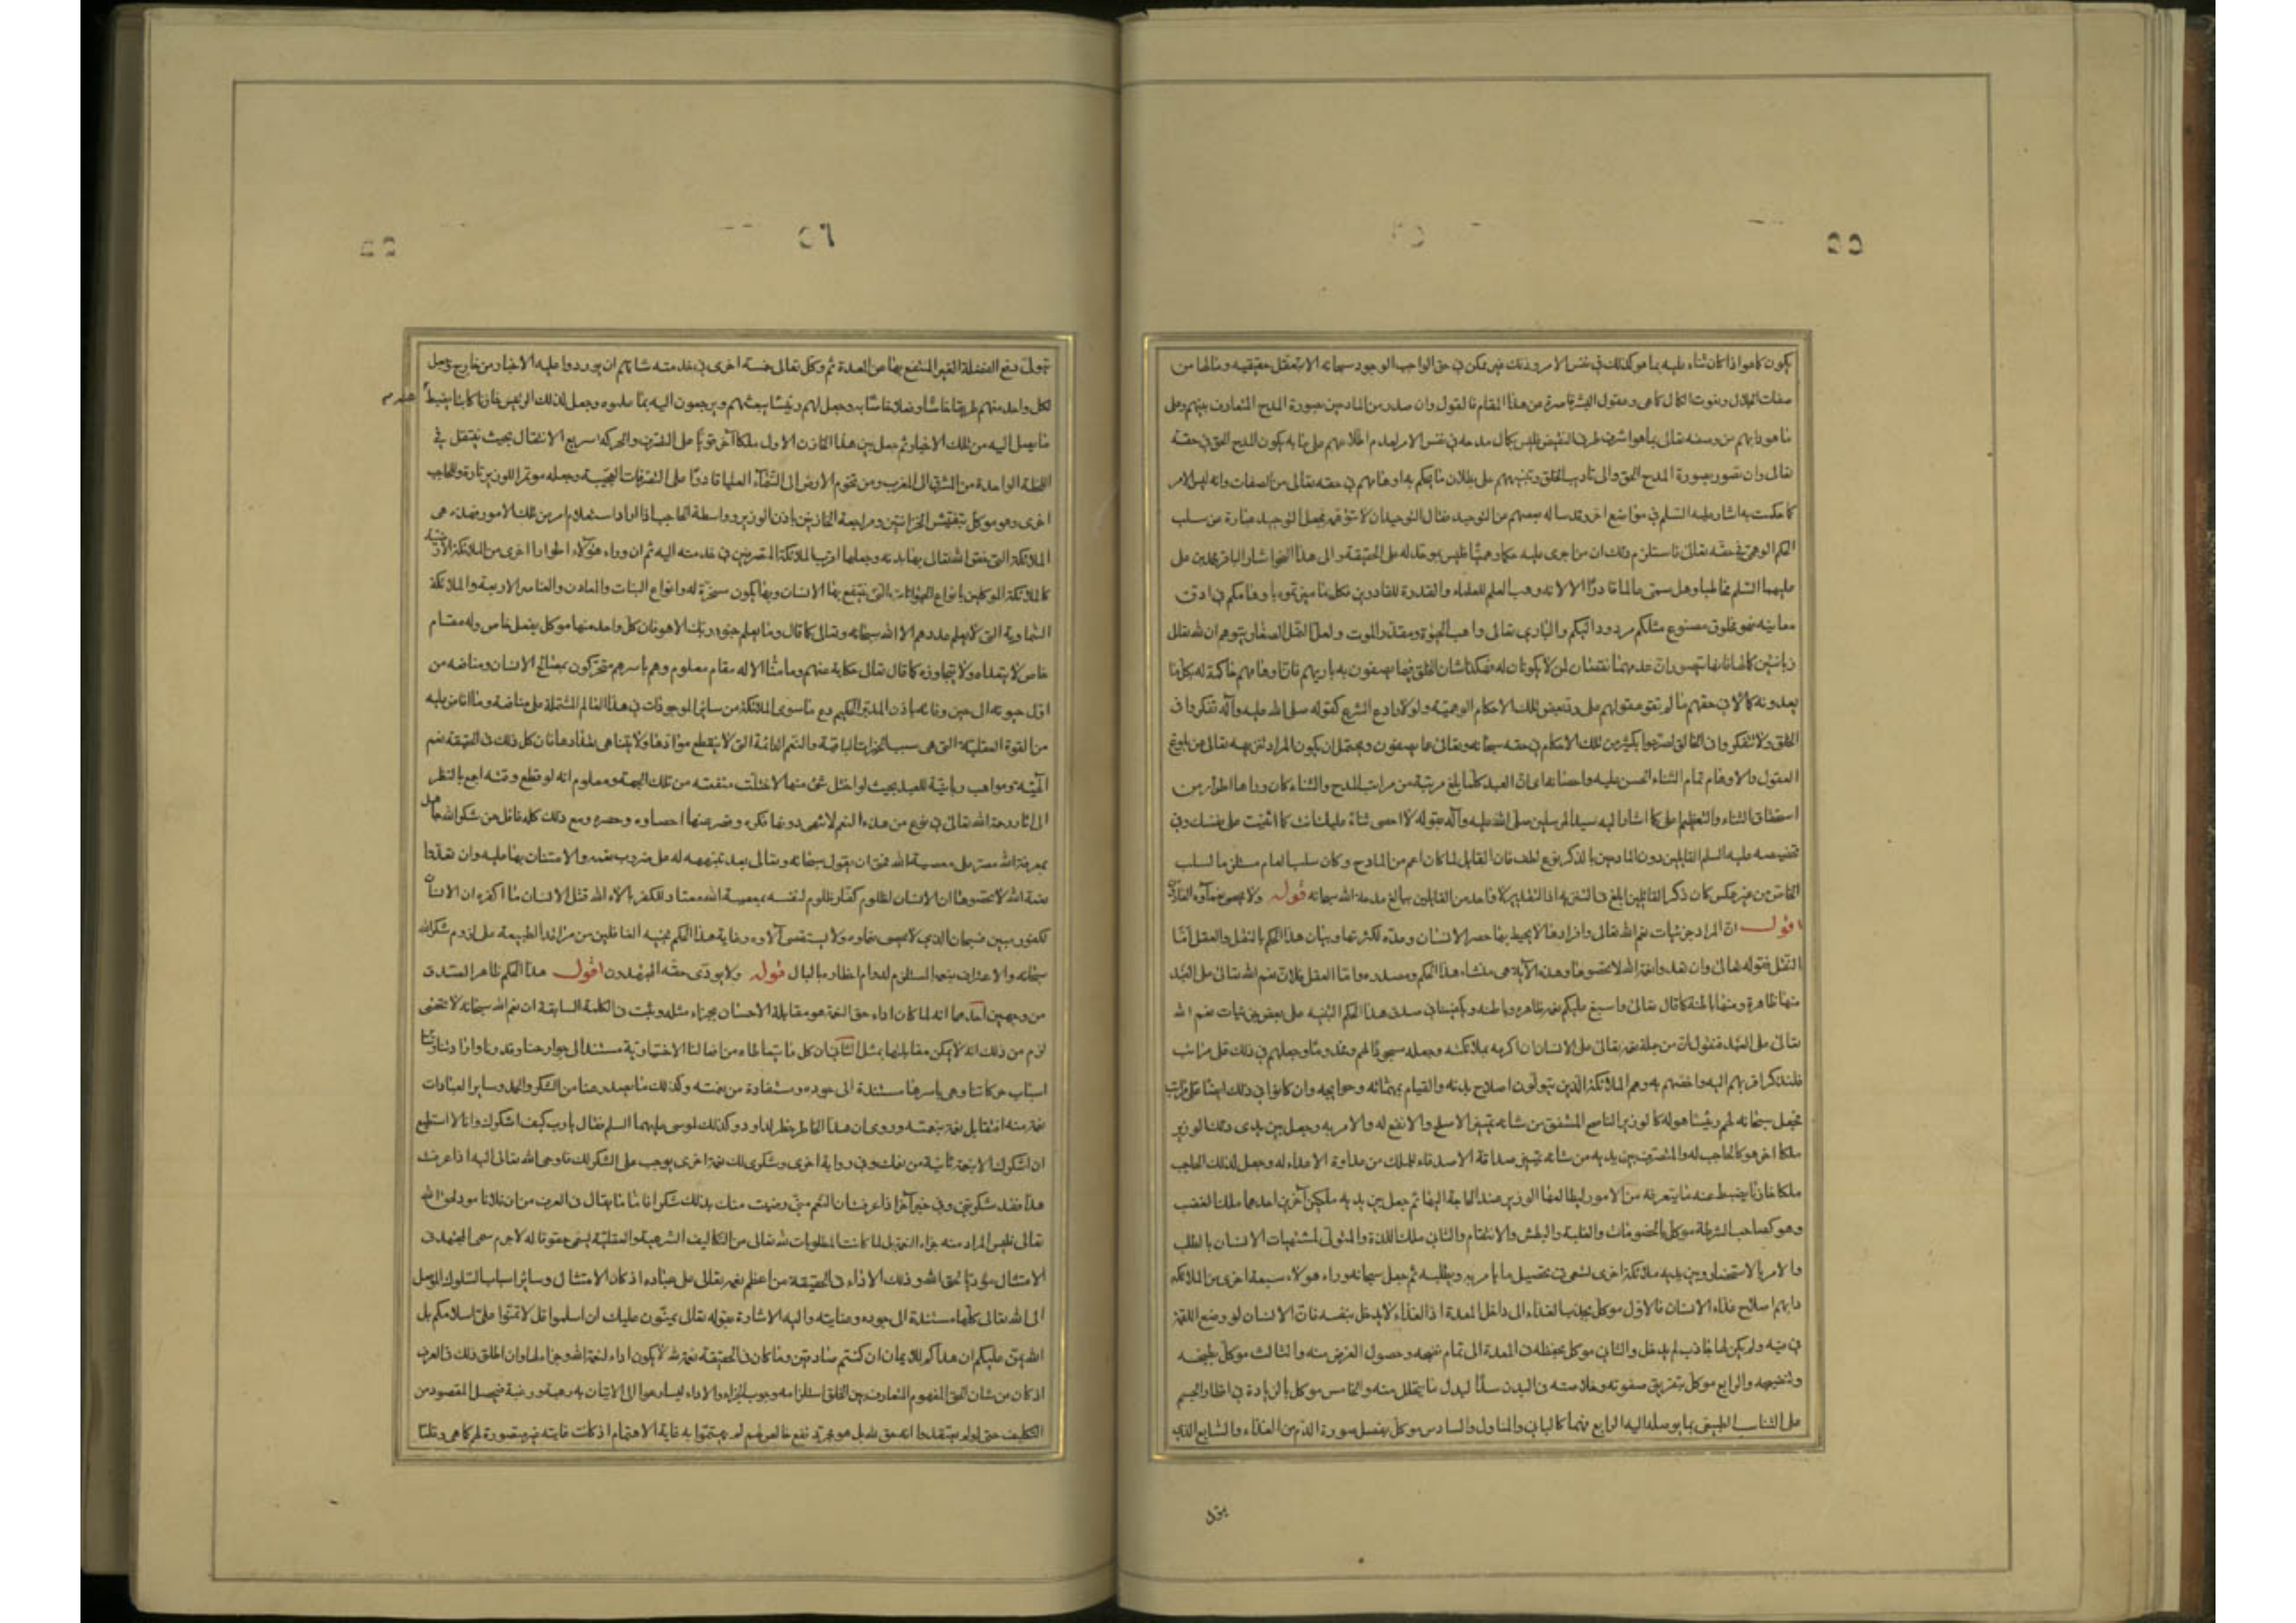 ٥٥
يكون كما هو اذا كان ثناء عليه بما هو كذلك في نفس الامر وذلك غير ممكن في حق الواجب الوجود سبحانه الا بتعقل حقيقته وما لها من
صفات الجلال ونعوت الكمال كما هى وعقول البشر قاصرة عن هذا المقام فالقول وان صدر عن المادحين بصورة المدح المتعارف بينهم وعلى
ما هو دابهم من وصفه تعالى بما هو اشرف طرفى النقيض فليس بكمال مدحه في نفس الامر لعدم اطلاعهم على ما به يكون المدح الحق في حقه
تعالى وان تصور بصورة المدح الحق والى تاديب الخلق وتنبيههم على بطلان ما يحكم به اوهامهم في حقه تعالى من الصفات وانه ليس الامر
كما حكمت به اشار عليه السلم في مواضع اخر وقد ساله بعضهم عن التوحيد فقال التوحيد ان لا تتوهمه فجعل التوحيد عبارة عن سلب
الحكم الوهمى في حقه تعالى فاستلزم ذلك ان من اجرى عليه حكما وهميا فليس بموحد له على الحقيقة والى هذا النحو اشار الباقر محمد بن على
عليهما السلم مخاطبا وهل سمى عالما قادرا الا لانه وهب العلم للعلماء والقدرة للقادرين فكل ما ميزتموه باوهامكم في ادق
معانيه فهو مخلوق مصنوع مثلكم مردود اليكم والبارى تعالى واهب الحيوة ومقدر الموت ولعل النمل الصغار يتوهم ان لله تعالى
زبانيين كما لها فانها تتصور ان عدمهما نقصان لمن لا يكونان له فهكذا شان الخلق فيما يصفون به باريهم فان اوهامهم حاكمة له بكل ما
يعدونه كمالا في حقهم ما لم تقو عقولهم على رد بعض تلك الاحكام الوهمية ولولا رادع الشرع كقوله صلى الله عليه وآله تفكروا في
الخلق ولا تتفكروا في الخالق لصرحوا بكثير من تلك الاحكام في حقه سبحانه وتعالى عما يصفون ويحتمل ان يكون المراد تنزيهه تعالى عن بلوغ
العقول والاوهام تمام الثناء الحسن عليه واحصائه اى ان العبد كلما بلغ مرتبة من مراتب المدح والثناء كان وراءها اطوار من
استحقاق الثناء والتعظيم على كما اشار اليه سيد المرسلين صلى الله عليه وآله بقوله لا احصى ثناء عليك انت كما اثنيت على نفسك وفى
تخصيصه عليه السلم القايلين دون المادحين بالذكر نوع لطف فان القايل لما كان اعم من المادح وكان سلب العام مستلزما لسلب
الخاص من غير عكس كان ذكر القائلين ابلغ في التنزيه اذ التقدير لا واحد من القايلين ببالغ مدحة الله سبحانه قوله ولا يحصى نعماؤه العادون
اقول ان المراد جزئيات نعم الله تعالى وافرادها لا يحيط بها حصر الانسان وعده لكثرتها وبيان هذا الحكم بالنقل والعقل اما
النقل فقوله تعالى وان تعدوا نعمة الله لا تحصوها وهذه الآية هى منشاء هذا الحكم ومصدره واما العقل فلان نعم الله تعالى على العبد
منها ظاهرة ومنها باطنة كما قال تعالى واسبغ عليكم نعمه ظاهرة وباطنة ويكفينا في صدق هذا الحكم التنبيه على بعض جزئيات نعم الله
تعالى على العبد فنقول ان من جملة نعمه تعالى على الانسان ان اكرمه بملائكته وجعله مسجودا لهم ومخدوما وجعلهم في ذلك على مراتب
فلنذكر اقربهم اليه واخصهم به وهم الملائكة الذين يتولون اصلاح بدنه والقيام بمهماته وحوايجه وان كانوا في ذلك ايضا على مراتب
فجعل سبحانه لهم رئيسا هو له كالوزير الناصح المشفق من شانه تمييز الاصلح والانفع له والامر به وجعل بين يدى ذلك الوزير
ملكا اخر هو كالحاجب له والمتصرف بين يديه من شانه تمييز صداقة الاصدقاء للملك من عداوة الاعداء له وجعل لذلك الحاجب
ملكا خازنا يضبط عنه ما يتعرفه من الامور ليطالعها الوزير عند الحاجة اليها ثم جعل بين يديه ملكين آخرين احدهما ملك الغضب
وهو كصاحب الشرطة موكل بالخصومات والغلبة والبطش والانتقام والثانى ملك اللذة والمتولى لمشتهيات الانسان بالطلب
والامر بالاستحضار وبين يديه ملائكة اخرى تسعى في تحصيل ما يامر به ويطلبه ثم جعل سبحانه وراء هولاء سبعة اخرى من الملائكة
دابهم اصلاح غذاء الانسان فالاول موكل بجذب الغذاء الى داخل المعدة اذ الغذاء لا يدخل بنفسه فان الانسان لو وضع اللقمة
في فيه ولم يكن لها جاذب لم يدخل والثانى موكل بحفظه في المعدة الى تمام نضجه وحصول الغرض منه والثالث موكل بطبخه
وتنضيجه والرابع موكل بتفريق صفوته وخلاصته في البدن سدا لبدل ما يتحلل منه والخامس موكل بالزيادة في اقطار الجسم
على التناسب الطبيعى بما يوصله اليه الرابع فهما كالبانى والمناول والسادس موكل بفصل صورة الدم من الغذاء والسابع الذى
يتولى
٥٦
يتولى دفع الفضلة الغير المنتفع بها عن المعدة ثم وكل تعالى خمسة اخرى في خدمته شانهم ان يوردوا عليه الاخبار من خارج وجعل
لكل واحد منهم طريقا خاصا وفعلا خاصا به وجعل لهم رئيسا يبعثهم ويرجعون اليه بما عملوه وجعل لذلك الرئيس خازنا كاتبا يضبط عنه
ما يصل اليه من تلك الاخبار ثم جعل بين هذا الخازن الاول ملكا آخر قويا على التصرف والحركة سريع الانتقال بحيث ينتقل في
اللحظة الواحدة من المشرق الى المغرب ومن تخوم الارض الى السماء العليا قادرا على التصرفات العجيبة وجعله موتمرا للوزير تارة وللحاجب
اخرى وهو موكل بتفتيش الخزانتين ومراجعة الخازنين باذن الوزير وواسطة الحاجب اذا اراد استعلام امر من تلك الامور فهذه هى
الملائكة التى خص الله تعالى بها بدنه وجعلها اقرب الملائكة المتصرفين في خدمته اليه ثم ان وراء هؤلاء اطوارا اخرى من الملائكة الارضية
كالملائكة الموكلين بانواع الحيوانات التى ينتفع بها الانسان وبها يكون مسخرة له وانواع النبات والمعادن والعناصر الاربعة والملائكة
السماوية التى لا يعلم عددهم الا الله سبحانه وتعالى كما قال وما يعلم جنود ربك الا هو فان كل واحد منها موكل بفعل خاص وله مقام
خاص لا يتعداه ولا يتجاوزه كما قال تعالى حكاية عنهم وما منا الا له مقام معلوم وهم باسرهم متحركون بمصالح الانسان ومنافعه من
اول حيوته الى حين وفاته باذن المدبر الحكيم دع ما سوى الملائكة من ساير الموجودات في هذا العالم المشتملة على منافعه وما افاض عليه
من القوة العقلية التى هى سبب الخيرات الباقية والنعم الدائمة التى لا ينقطع موادها ولا يتناهى تعدادها فان كل ذلك في الحقيقة نعم
الهية ومواهب ربانية للعبد بحيث لو اختل شئ منها لاختلت منفعته من تلك الجهة ومعلوم انه لو قطع وقته اجمع بالنظر
الى اثار رحمة الله تعالى في نوع من هذه النعم لانتهى دونها فكره وقصر عنها احصاوه وحصره ومع ذلك كله فاغافل عن شكر الله جاهل
بمعرفة الله مصر على معصية الله فحق ان يقول سبحانه وتعالى بعد تنبيهه له على ضروب نعمه والامتنان بها عليه وان تعدوا
نعمة الله لا تحصوها ان الانسان لظلوم كفار ظلوم لنفسه بمعصية الله معتاد للكفر بالاء الله قتل الانسان ما اكفره ان الانسان
لكفور مبين فسبحان الذى لا يحصى نعماوه ولا يستقصى آلاوه وغاية هذا الحكم تنبيه الغافلين من مراقد الطبيعة على لزوم شكر الله
سبحانه والاعتراف بنعمه المستلزم لدوام اخطاره بالبال قوله ولا يودى حقه المجتهدون اقول هذا الحكم ظاهر الصدق
من وجهين احدهما انه لما كان اداء حق النعمة هو مقابلة الاحسان بجزاء مثله وثبت في الكلمة السابقة ان نعم الله سبحانه لا تحصى
لزم من ذلك انه لا يمكن مقابلتها بمثل الثانى ان كل ما نتعاطاه من افعالنا الاختيارية مستند الى جوارحنا وقدرتنا وارادتنا وساير
اسباب حركاتنا وهى باسرها مستندة الى جوده ومستفادة من نعمته وكذلك ما يصدر عنا من الشكر والحمد وساير العبادات
نعمة منه فتقابل نعمة بنعمته وروى ان هذا الخاطر خطر لداود وكذلك لموسى عليهما السلم فقال يا رب كيف اشكرك وانا لا استطيع
ان اشكرك الا بنعمة ثانية من نعمك وفى رواية اخرى وشكرى لك نعمة اخرى يوجب على الشكر لك فاوحى الله تعالى اليه اذا عرفت
هذا فقد شكرتنى وفى خبر آخر اذا عرفت ان النعم منى رضيت منك بذلك شكرا فاما ما يقال في العرف من ان فلانا مود لحق الله
تعالى فليس المراد منه جزاء النعمة بل لما كانت المطلوبات لله تعالى من التكاليف الشرعية والعقلية يسمى حقوقا له لاجرم سمى المجتهد في
الامتثال مؤديا لحق الله وذلك الاداء في الحقيقة من اعظم نعمه تعالى على عباده اذ كان الامتثال وساير اسباب السلوك الموصل
الى الله تعالى كلها مستندة الى جوده وعنايته واليه الاشارة بقوله تعالى يمنون عليك ان اسلموا قل لا تمنوا على اسلامكم بل
الله يمن عليكم ان هداكم للايمان ان كنتم صادقين وما كان في الحقيقة نعمة لله لا يكون اداء لنعمة الله وجزاء لها وان اطلق ذلك في العرف
اذ كان من شان الحق المفهوم المتعارف بين الخلق استلزامه وجوب الجزاء والاداء ليسارعوا الى الاتيان به رهبة ورغبة فيحصل المقصود من
التكليف حتى لو لم يعتقدوا انه حق لله بل هو مجرد نفع خالص لهم لم يهتموا به غاية الاهتمام اذ كانت غايته غير متصورة لهم كما هى وقلما